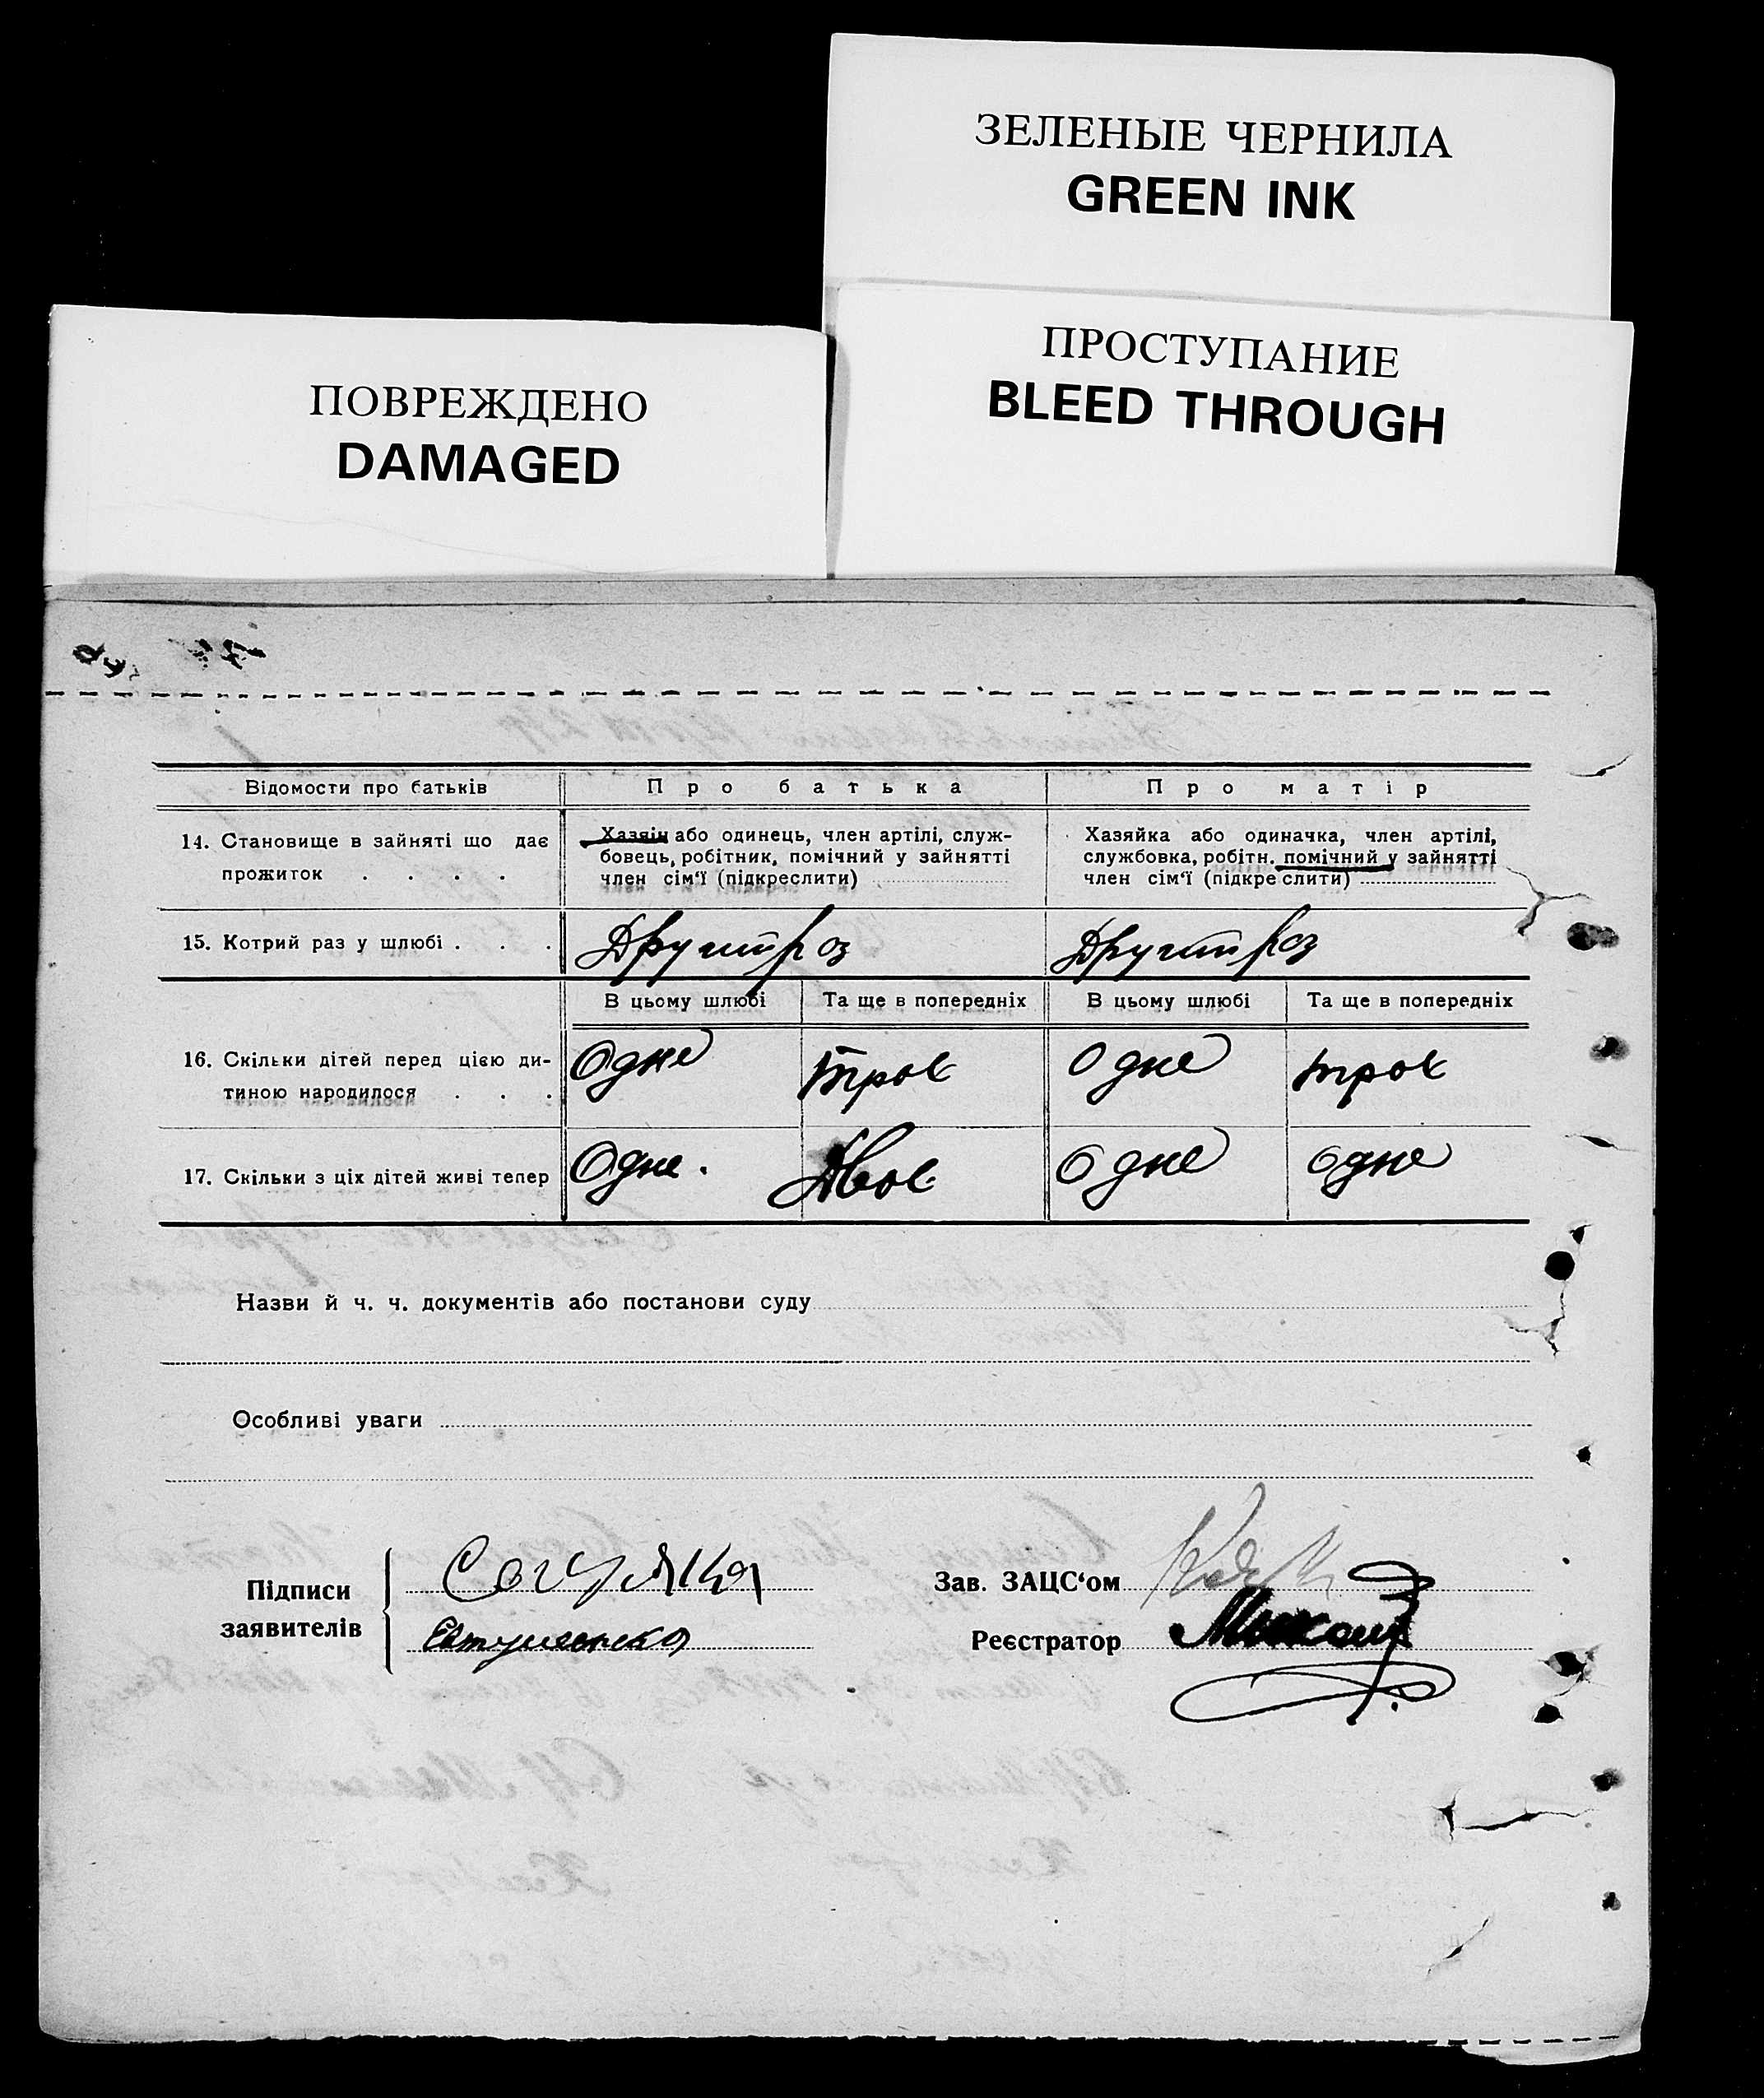 ЗЕЛЕНЫЕ ЧЕРНИЛА
GREEN INK
ПРОСТУПАНИЕ
BLEED THROUGH
ПОВРЕЖДЕНО
DAMAGED
Відомости про батьків
Про батька
Про матір
14. Становище в зайняті що дає
прожиток . . . .
Хазяін або одинець, член артілі, служ-
бовець, робітник, помічний у зайнятті
член сім'ї (підкреслити)
Хазяйка або одиначка, член артілі,
службовка, робітн. помічний у зайнятті
член сім'ї (підкреслити)
15. Котрий раз у шлюбі . . .
Другий раз
Другий раз
В цьому шлюбі
Та ще в попередніх
В цьому шлюбі
Та ще в попередніх
16. Скільки дітей перед цією ди-
тиною народилося . . .
Одне
троє
Одне
троє
17. Скільки з ціх дітей живі тепер
Одне.
Двоє
Одне
одне
Назви й ч. ч. документів або постанови суду
Особливі уваги
Підписи
заявителів
Зав. ЗАЦС'ом
Реєстратор